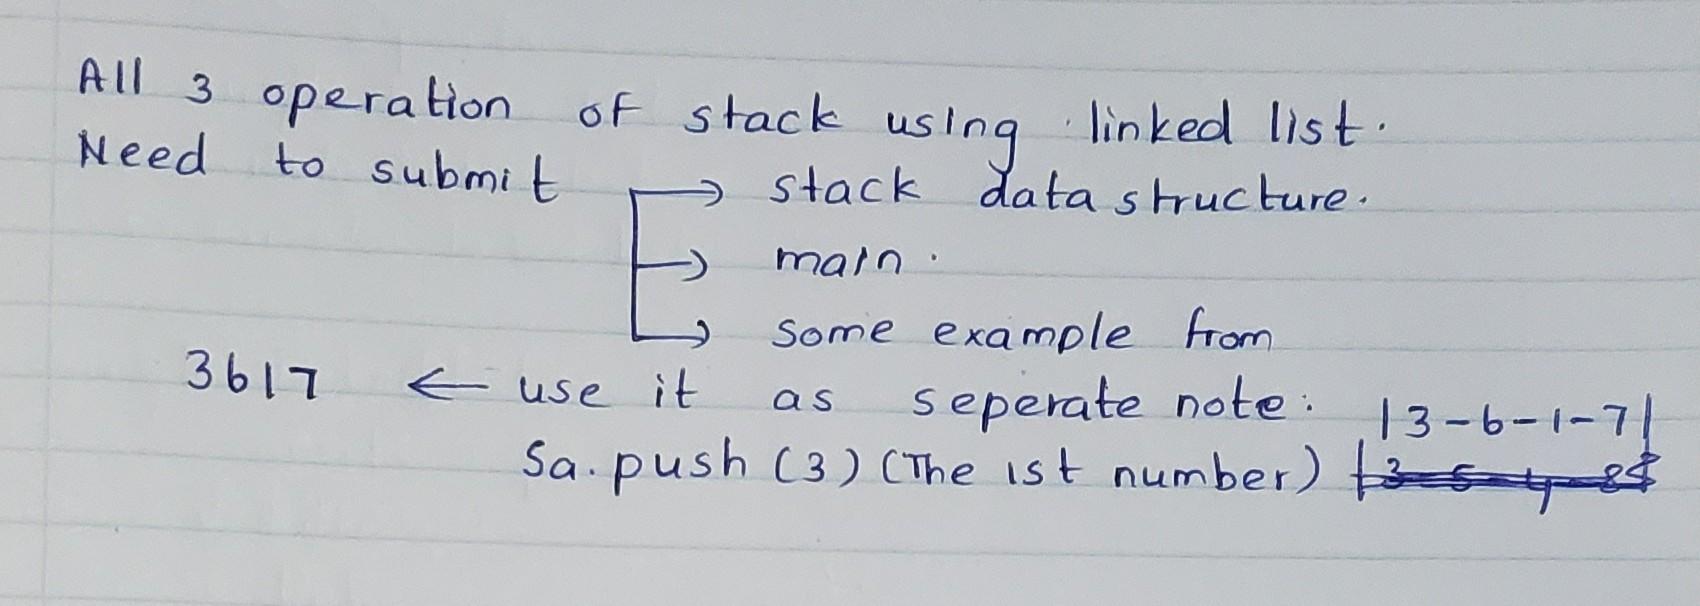 All 3 operation of stack using linked list.
Need to submit → stack data structure.
→ main.
→ some example from
3617 ← use it as seperate note: |3-6-1-7|
Sa.push (3) (The 1st number)